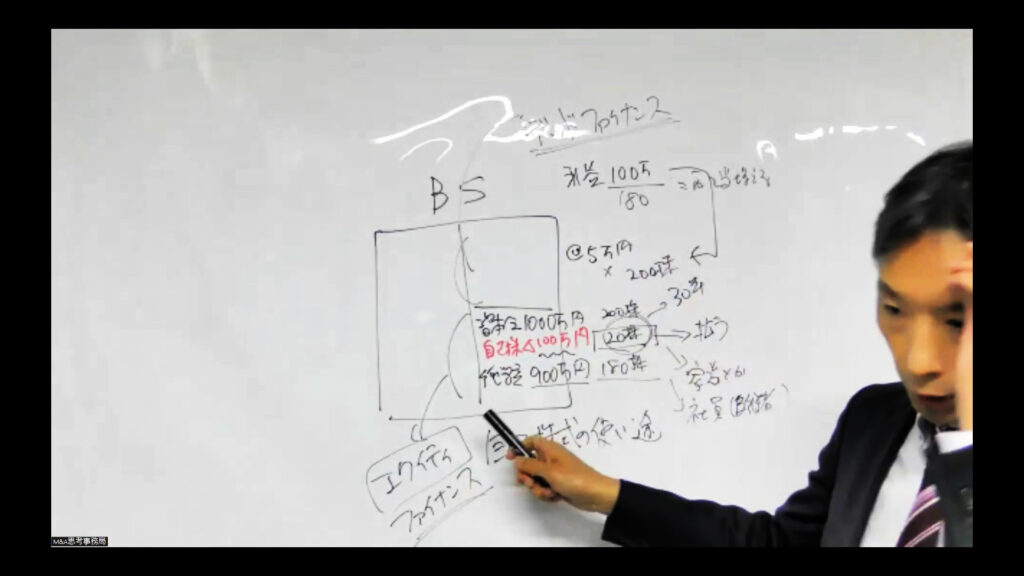 デッドファイナンス
利益 100万
180
BS
@5万円
× 200株
資本金1000万円 200株
30株
自己株△100万円 20株 → 払う
純資産 900万円 180株
社員
自己株式の使い途
エクイティ
ファイナンス
M&A思考事務局